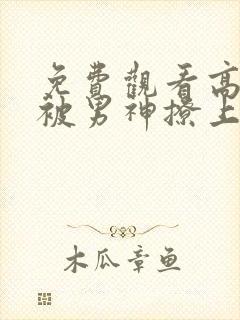 免費觀看高
被男神撩上
木瓜章鱼